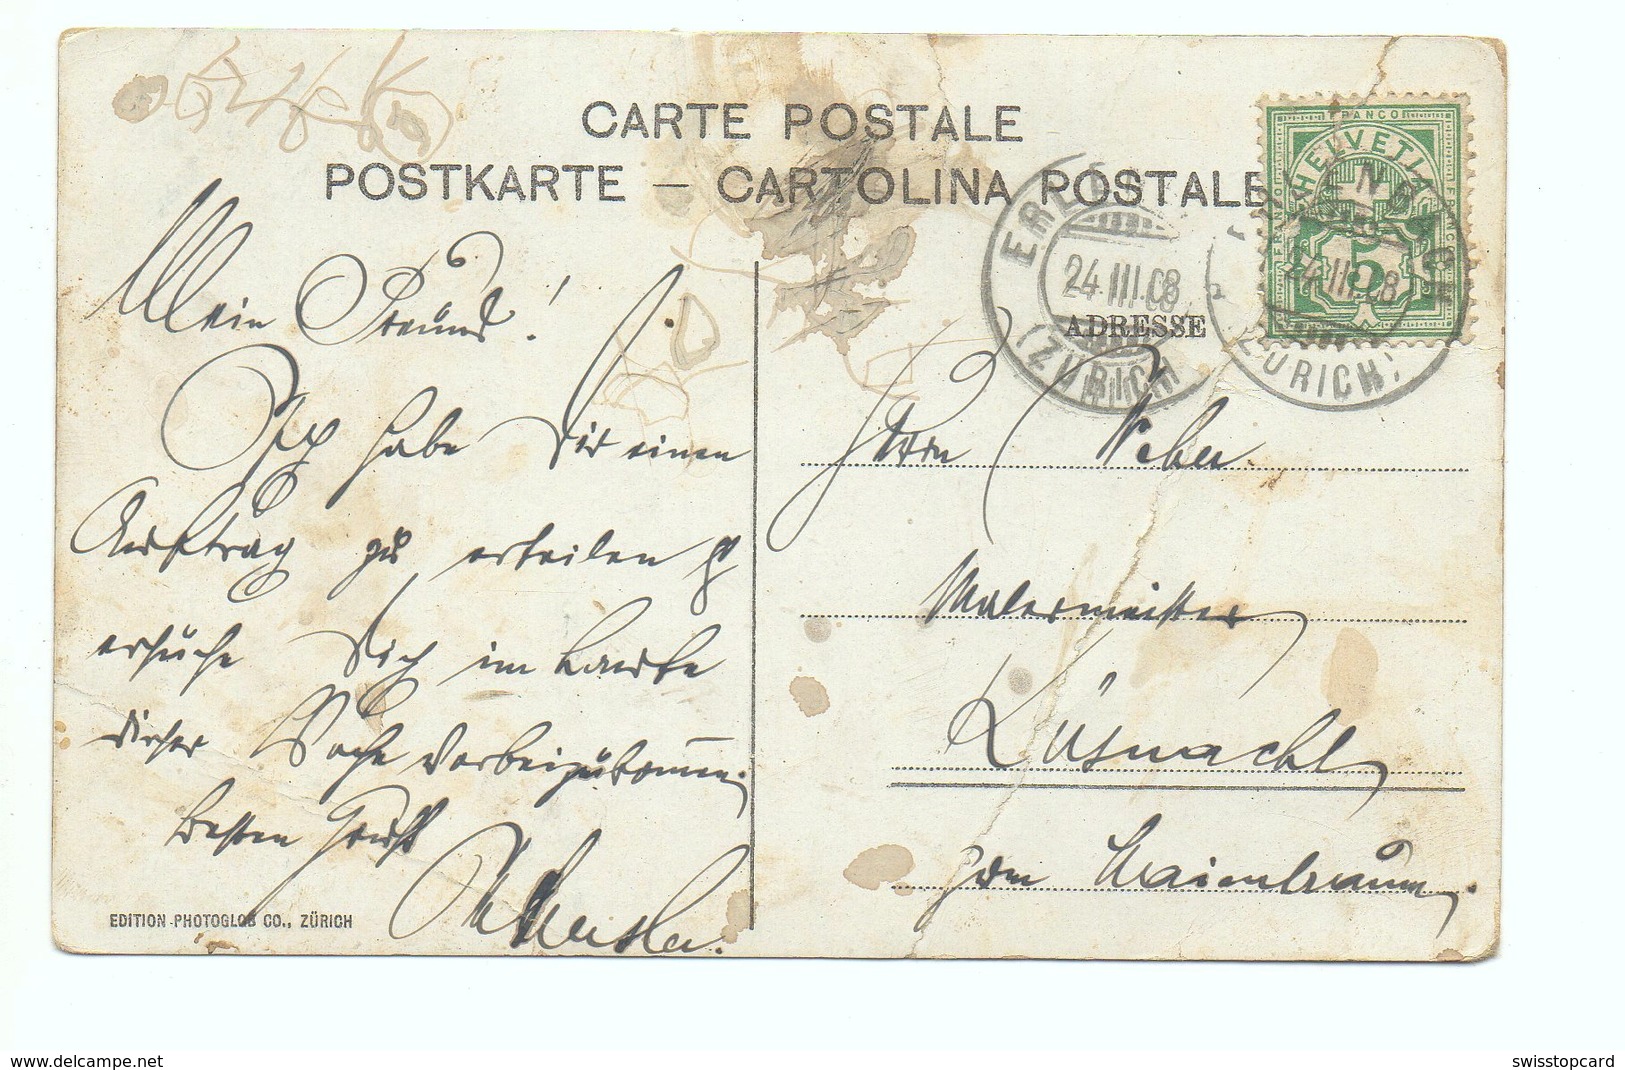 CARTE POSTALE
POSTKARTE – CARTOLINA POSTALE
FRANCO
HELVETIA
5
ERLENBACH
24.III.08
(ZÜRICH)
24.III.08
(ZÜRICH)
ADRESSE
Mein Freund!
Ich habe Dir einen
Auftrag zu erteilen &
ersuche Dich im Laufe
dieser Woche vorbeizukommen.
Besten Gruß
EDITION PHOTOGLOB CO., ZÜRICH
Herrn Weber
Malermeister
Küsnacht
zum
delcampe.net
swisstopcard